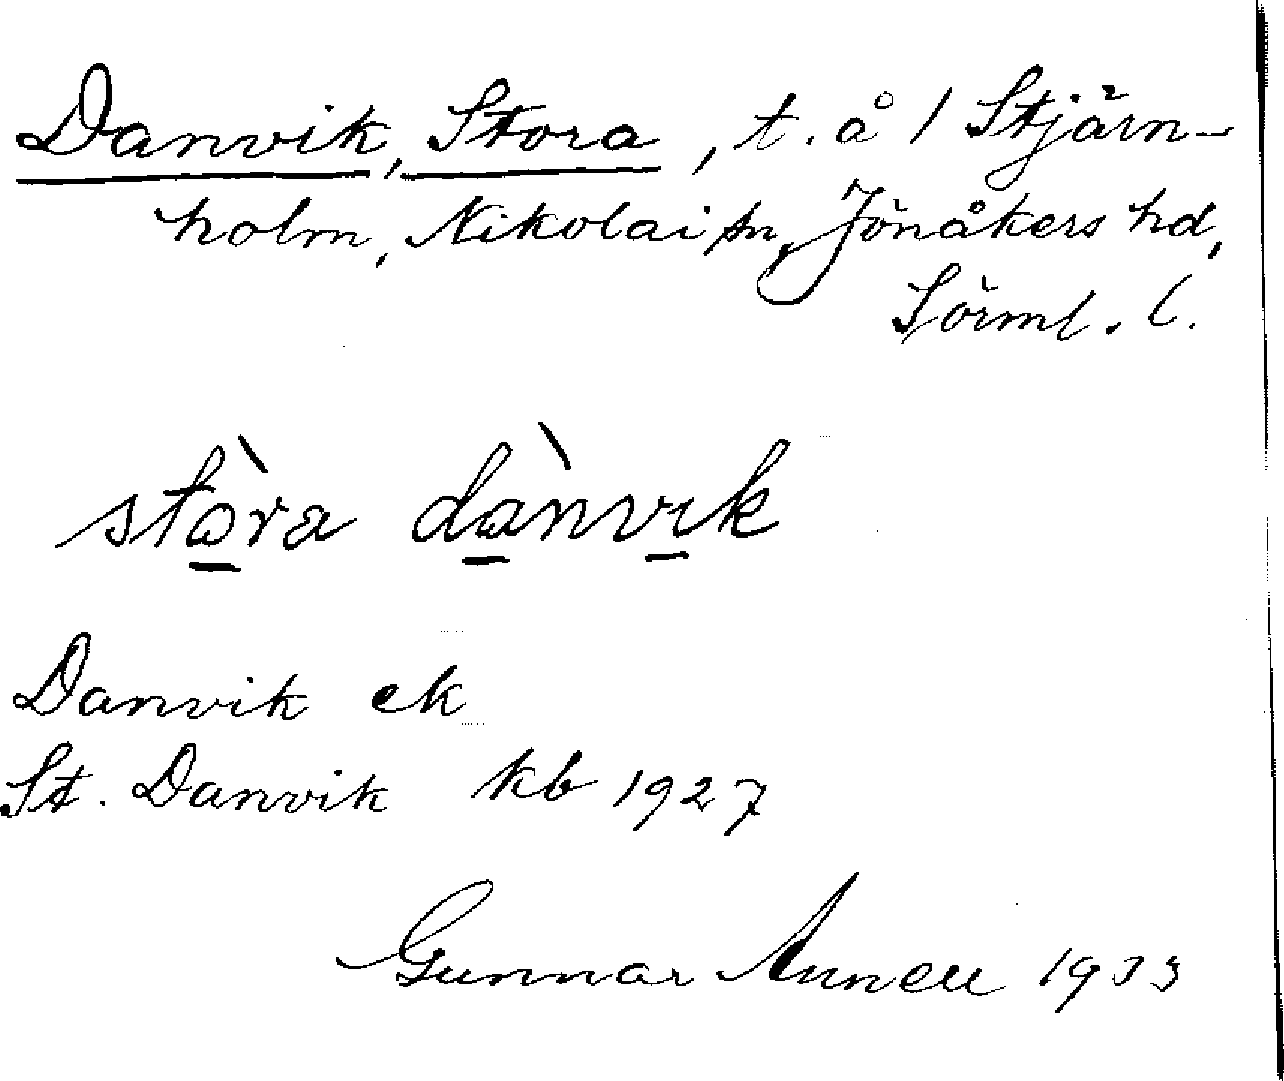 Danvik, Stora, t. å / Stjärn-
holm, Nikolai sn, Jönåkers hd,
Sörml. l.
stòra dànvik
Danvik ek
St. Danvik kb 1927
Gunnar Annell 1933